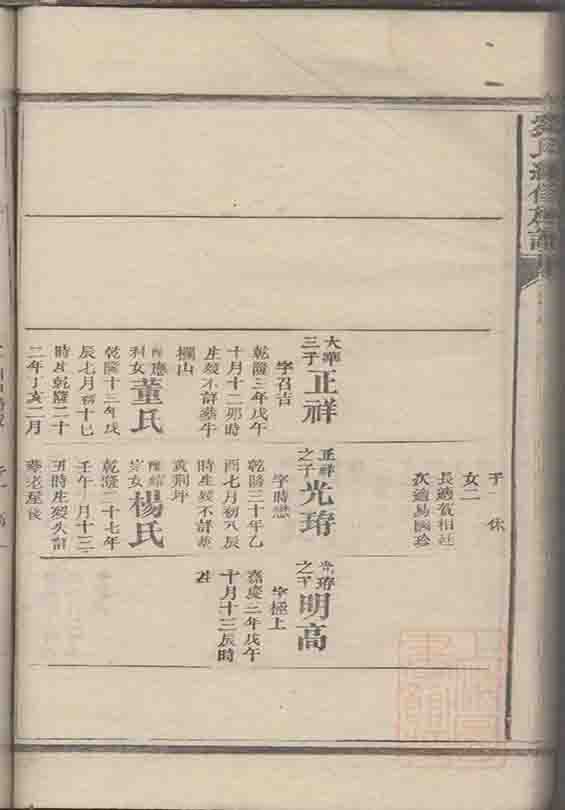 氏續修族譜
子一 休
女二
長適賀相
次適易國珍
大華三子
正祥
字召吉
乾隆三年戊午
十月十二卯時
生歿不詳葬牛
欄山
配應
利女
董氏
乾隆十三年戊
辰七月初十巳
時生乾隆二十
二年丁亥二月
正祥之子
光珛
字時懋
乾隆三十年乙
酉七月初八辰
時生歿不詳葬
黃荆坪
配紹
宗女
楊氏
乾隆二十七年
壬午 月十三
丑時生歿失詳
葬老屋後
光珛之子
明高
字極上
嘉慶三年戊午
十月十三辰時
生